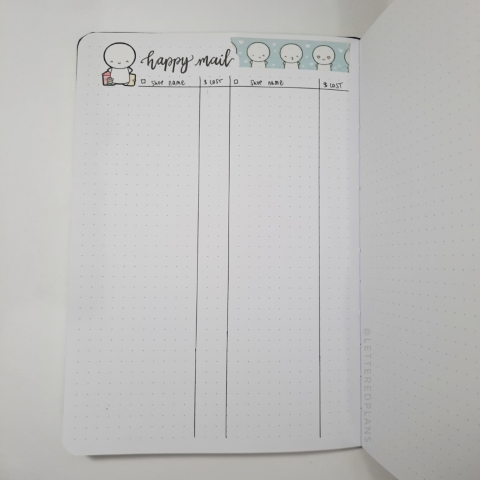 happy mail
☐ SHOP NAME $ COST ☐ SHOP NAME $ COST
@LETTEREDPLANS